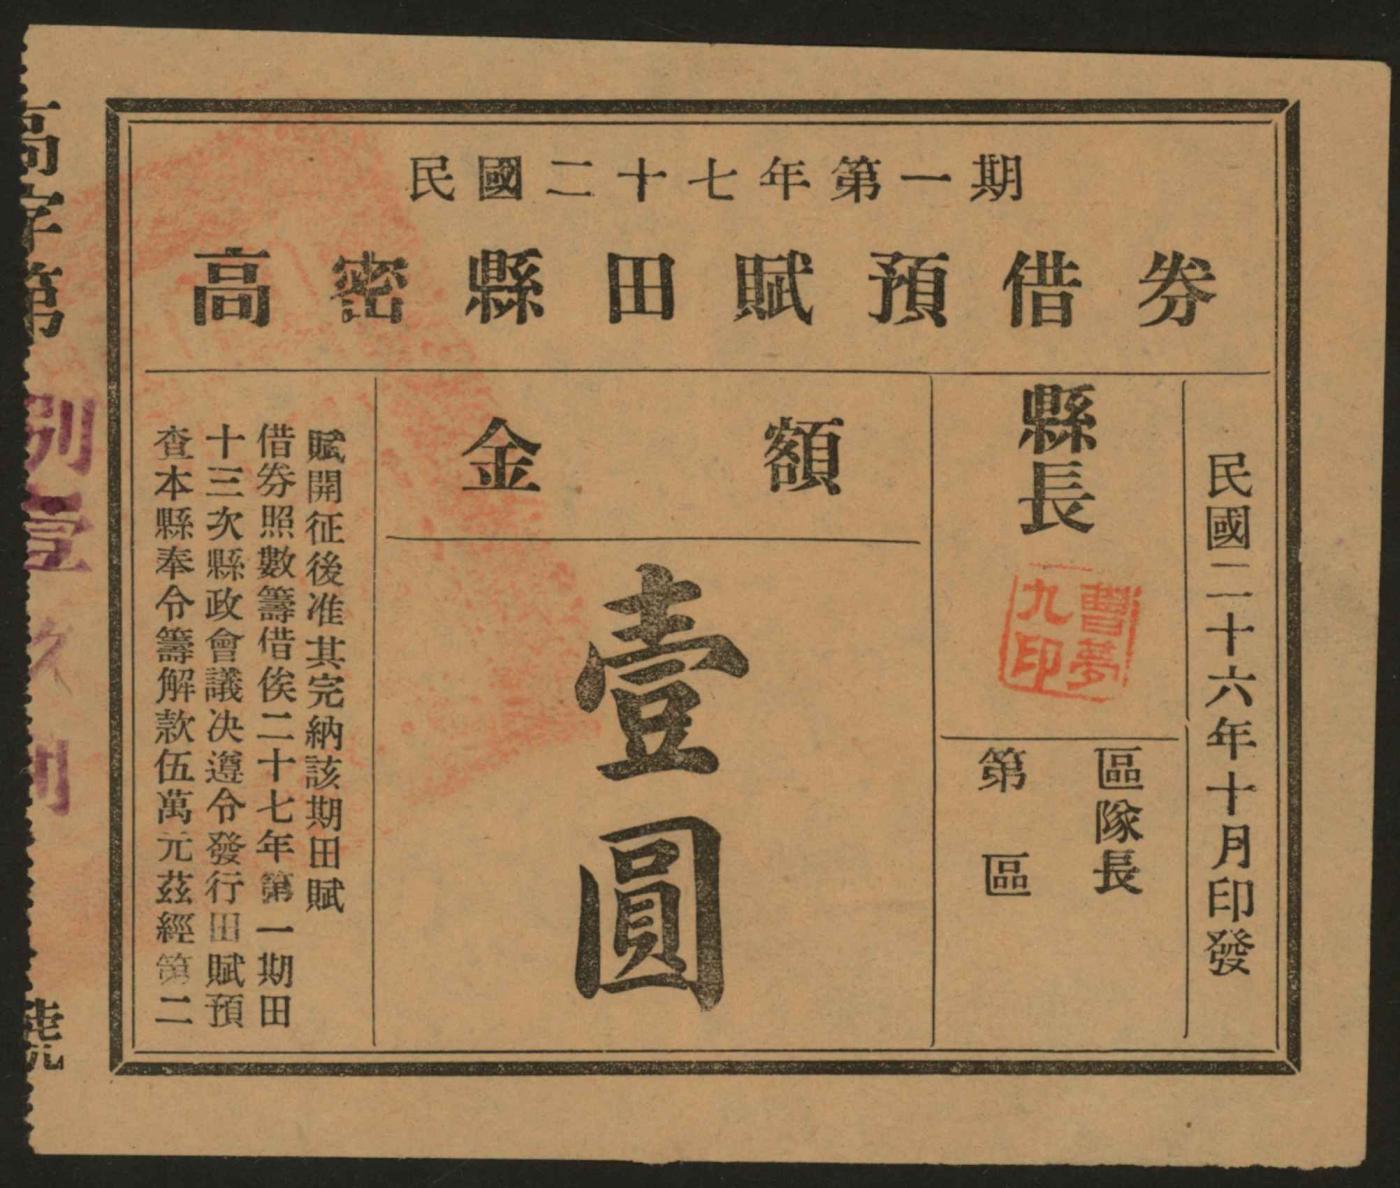 民國二十七年第一期
高密縣田賦預借券
高字第捌壹玖捌號
查本縣奉令籌解款伍萬元茲經第二
十三次縣政會議決遵令發行田賦預
借券照數籌借俟二十七年第一期田
賦開征後准其完納該期田賦
金額
壹圓
縣長
曹夢九印
第 區
區隊長
民國二十六年十月印發